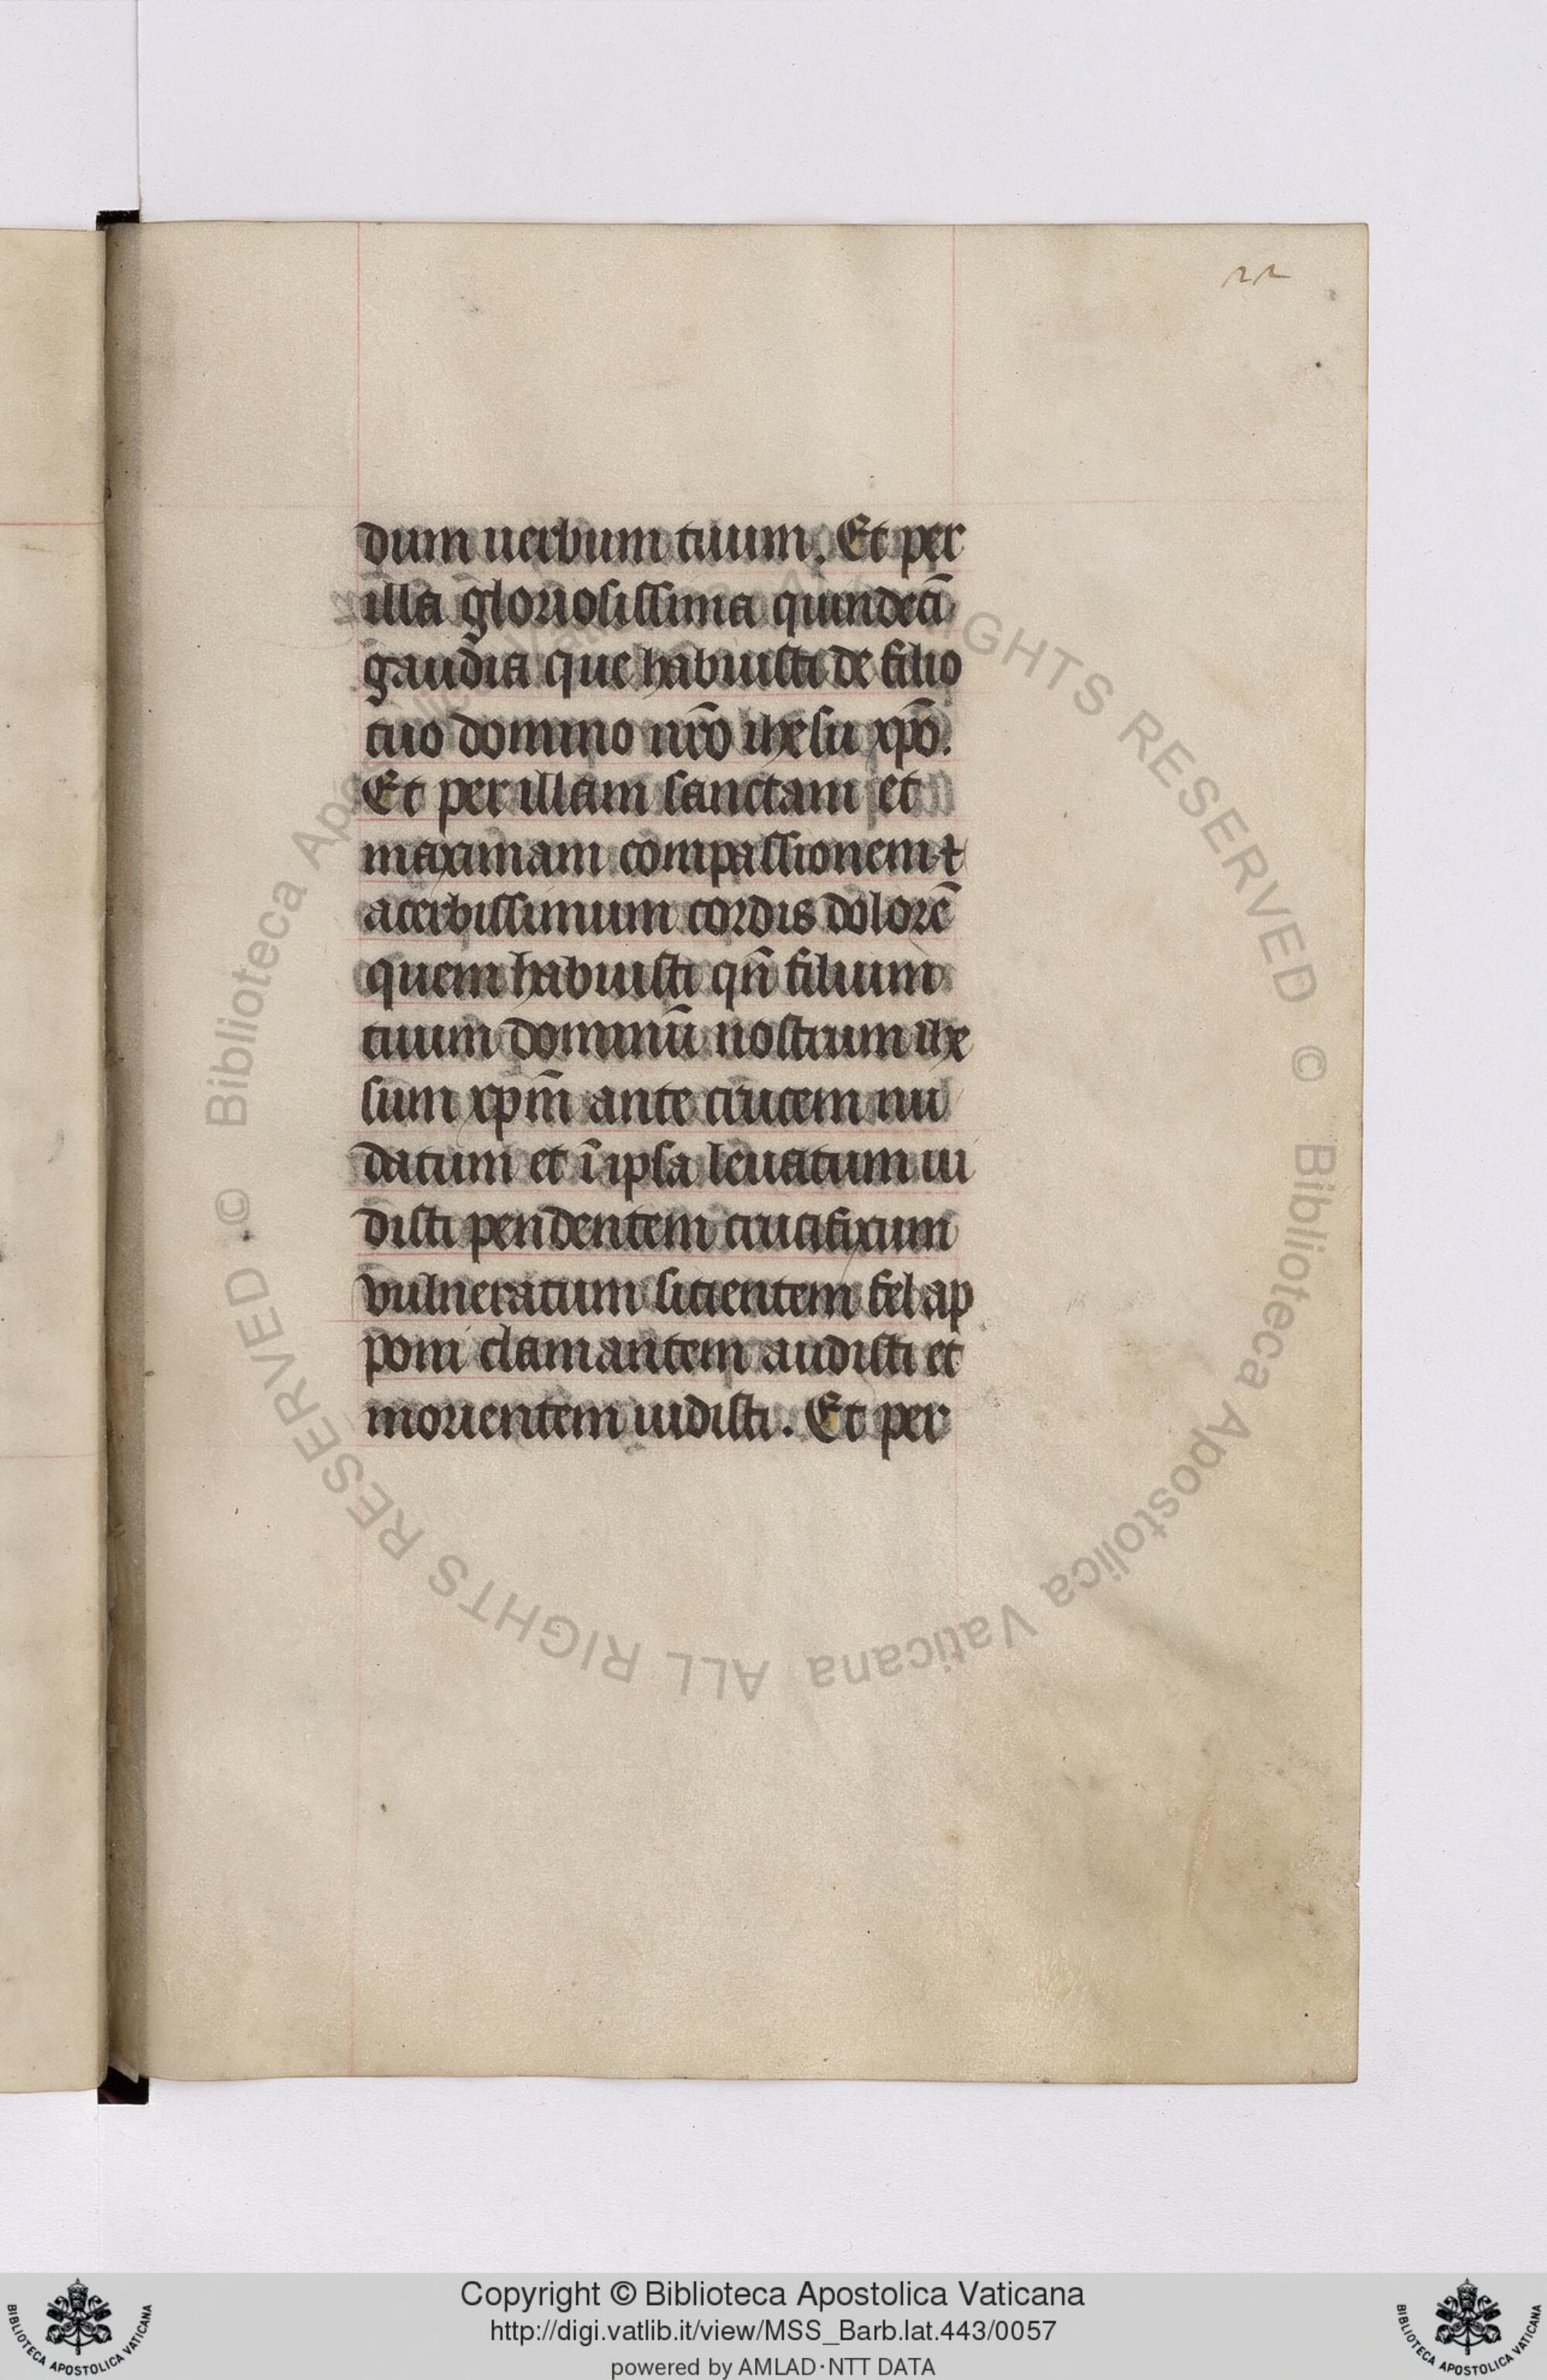 22
dum uerbum tuum. Et per
illa gloriosissima quindecī
gaudia que habuisti de filio
tuo domino nr̄o ihesu xp̄o.
Et per illam sanctam et
maximam compassionem ⁊
acerbissimum cordis dolorē
quem habuisti qn̄ filium
tuum dominū nostrum ihe
sum xpm̄ ante crucem nu
datum et ī ipsa leuatum ui
disti pendentem crucifixum
vulneratum sicientem fel ap
poni clamantem audisti et
morientem uidisti. Et per
© Biblioteca Apostolica Vaticana ALL RIGHTS RESERVED
© Biblioteca Apostolica Vaticana ALL RIGHTS RESERVED
Copyright © Biblioteca Apostolica Vaticana
http://digi.vatlib.it/view/MSS_Barb.lat.443/0057
powered by AMLAD·NTT DATA
BIBLIOTECA APOSTOLICA VATICANA
BIBLIOTECA APOSTOLICA VATICANA